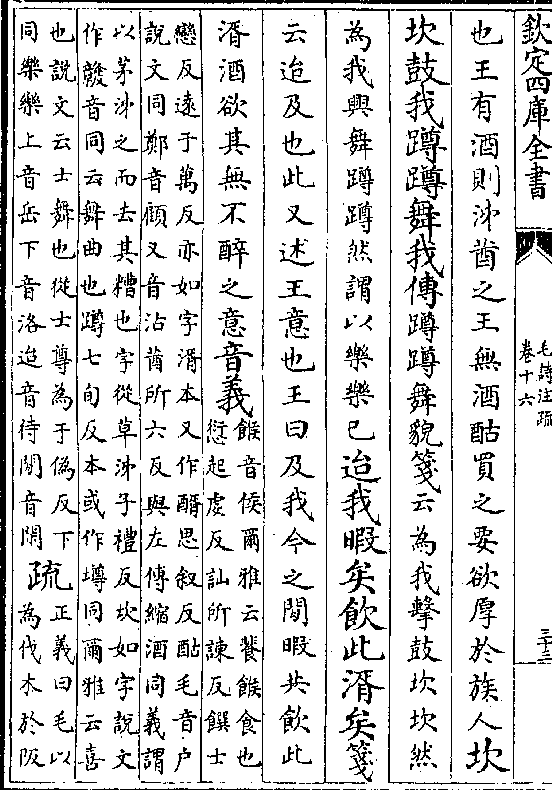 欽定四庫全書
毛詩注疏
卷十六
三十三
也王有酒則泲莤之王無酒酤買之要欲厚於族人坎
坎鼓我蹲蹲舞我傳蹲蹲舞貌箋云為我擊鼓坎坎然
為我興舞蹲蹲然謂以樂樂已迨我暇矣飲此湑矣箋
云迨及也此又述王意也王曰及我今之閒暇共飲此
湑酒欲其無不醉之意音義
餱音侯爾雅云餥餱食也
愆起虔反訕所諫反饌士
戀反遠于萬反亦如字湑本又作醑思叙反酤毛音户
說文同鄭音顧又音沽莤所六反與左傳縮酒同義謂
以茅泲之而去其糟也字從草泲子禮反坎如字說文
作竷音同云舞曲也蹲七旬反本或作墫同爾雅云喜
也說文云士舞也從士尊為于偽反下
同樂樂上音岳下音洛迨音待閒音閑
疏
正義曰毛以
為伐木於阪